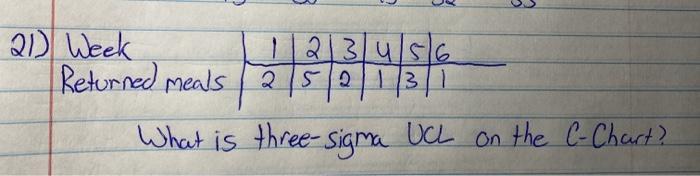 21) Week 1 2 3 4 5 6
Returned meals 2 5 2 1 3 1
What is three-sigma UCL on the C-Chart?